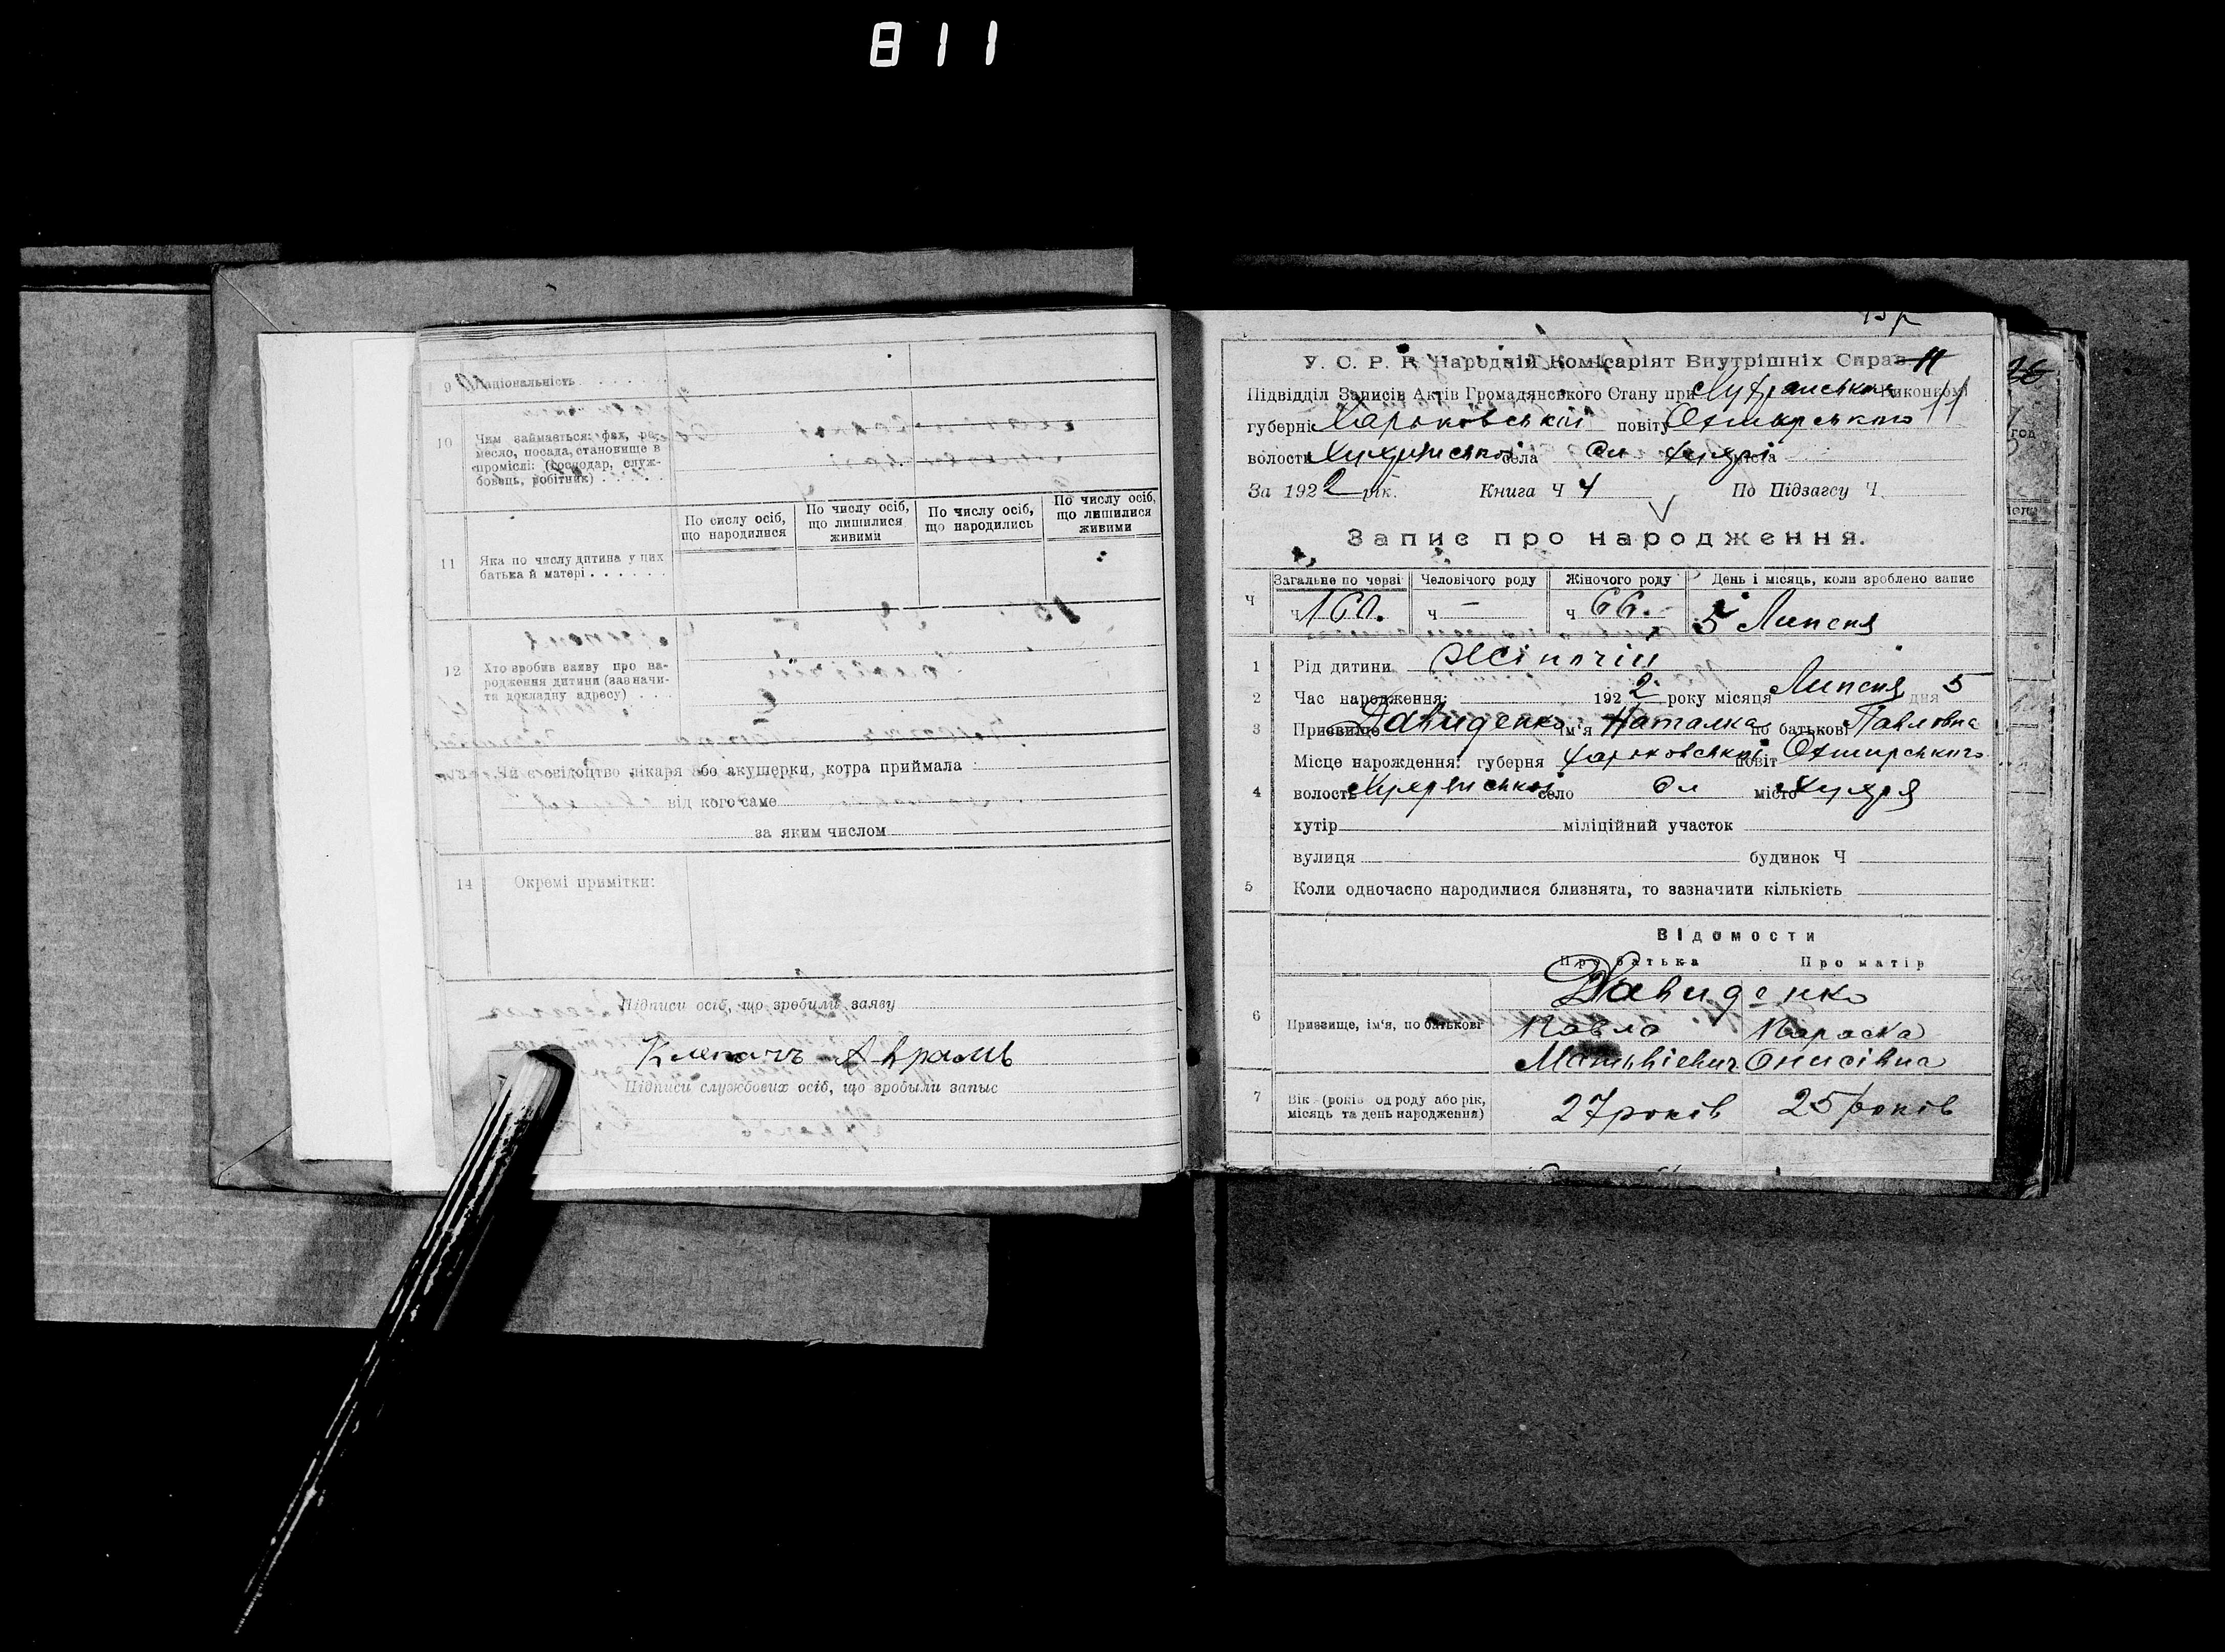 811
9 Національність
10 Чим займається: фах, ре-
месло, посада, становище в
промислі: (господар, служ-
бовець, робітник)
По числу осіб, що народилися
По числу осіб, що лишилися живими
По числу осіб, що народились
По числу осіб, що лишилися живими
11 Яка по числу дитина у цих
батька й матері
12 Хто зробив заяву про на-
родження дитини (зазначи-
ти докладну адресу)
Чи є свідоцтво лікаря або акушерки, котра приймала
від кого саме
за яким числом
14 Окремі примітки:
Підписи осіб, що зробили заяву
Аврамъ
Підписи службових осіб, що зробыли запыс
У. С. Р. Р. Народній Комісаріят Внутрішніх Справ 11
Підвідділ Записів Актів Громадянського Стану при виконкомі
губерні Харьковській повіту Охтырського 11
волости села сл Хухрі міста
За 1922 рік. Книга Ч 4 По Підзагсу Ч.
Запис про народження.
Загальне по черзі Человічого роду Жіночого роду День і місяць, коли зроблено запис
Ч ч 160. ч — ч 66. 5 Липня
1 Рід дитини Жіночій
2 Час народження: 1922 року місяця Липня дня 5
3 Призвище Давиденко ім'я Наталка по батькові Павловна
Місце народження: губерня Харьковській повіт Охтирського
4 волость село сл місто Хухря
хутір міліційний участок
вулиця будинок Ч
5 Коли одночасно народилися близнята, то зазначити кількість
Відомости
Про батька Про матір
Давиденко
6 Призвище, ім'я, по батькові Павло Параска
Матвіевич Онисівна
7 Вік (років од роду або рік,
місяць та день народження) 27 років 25 років